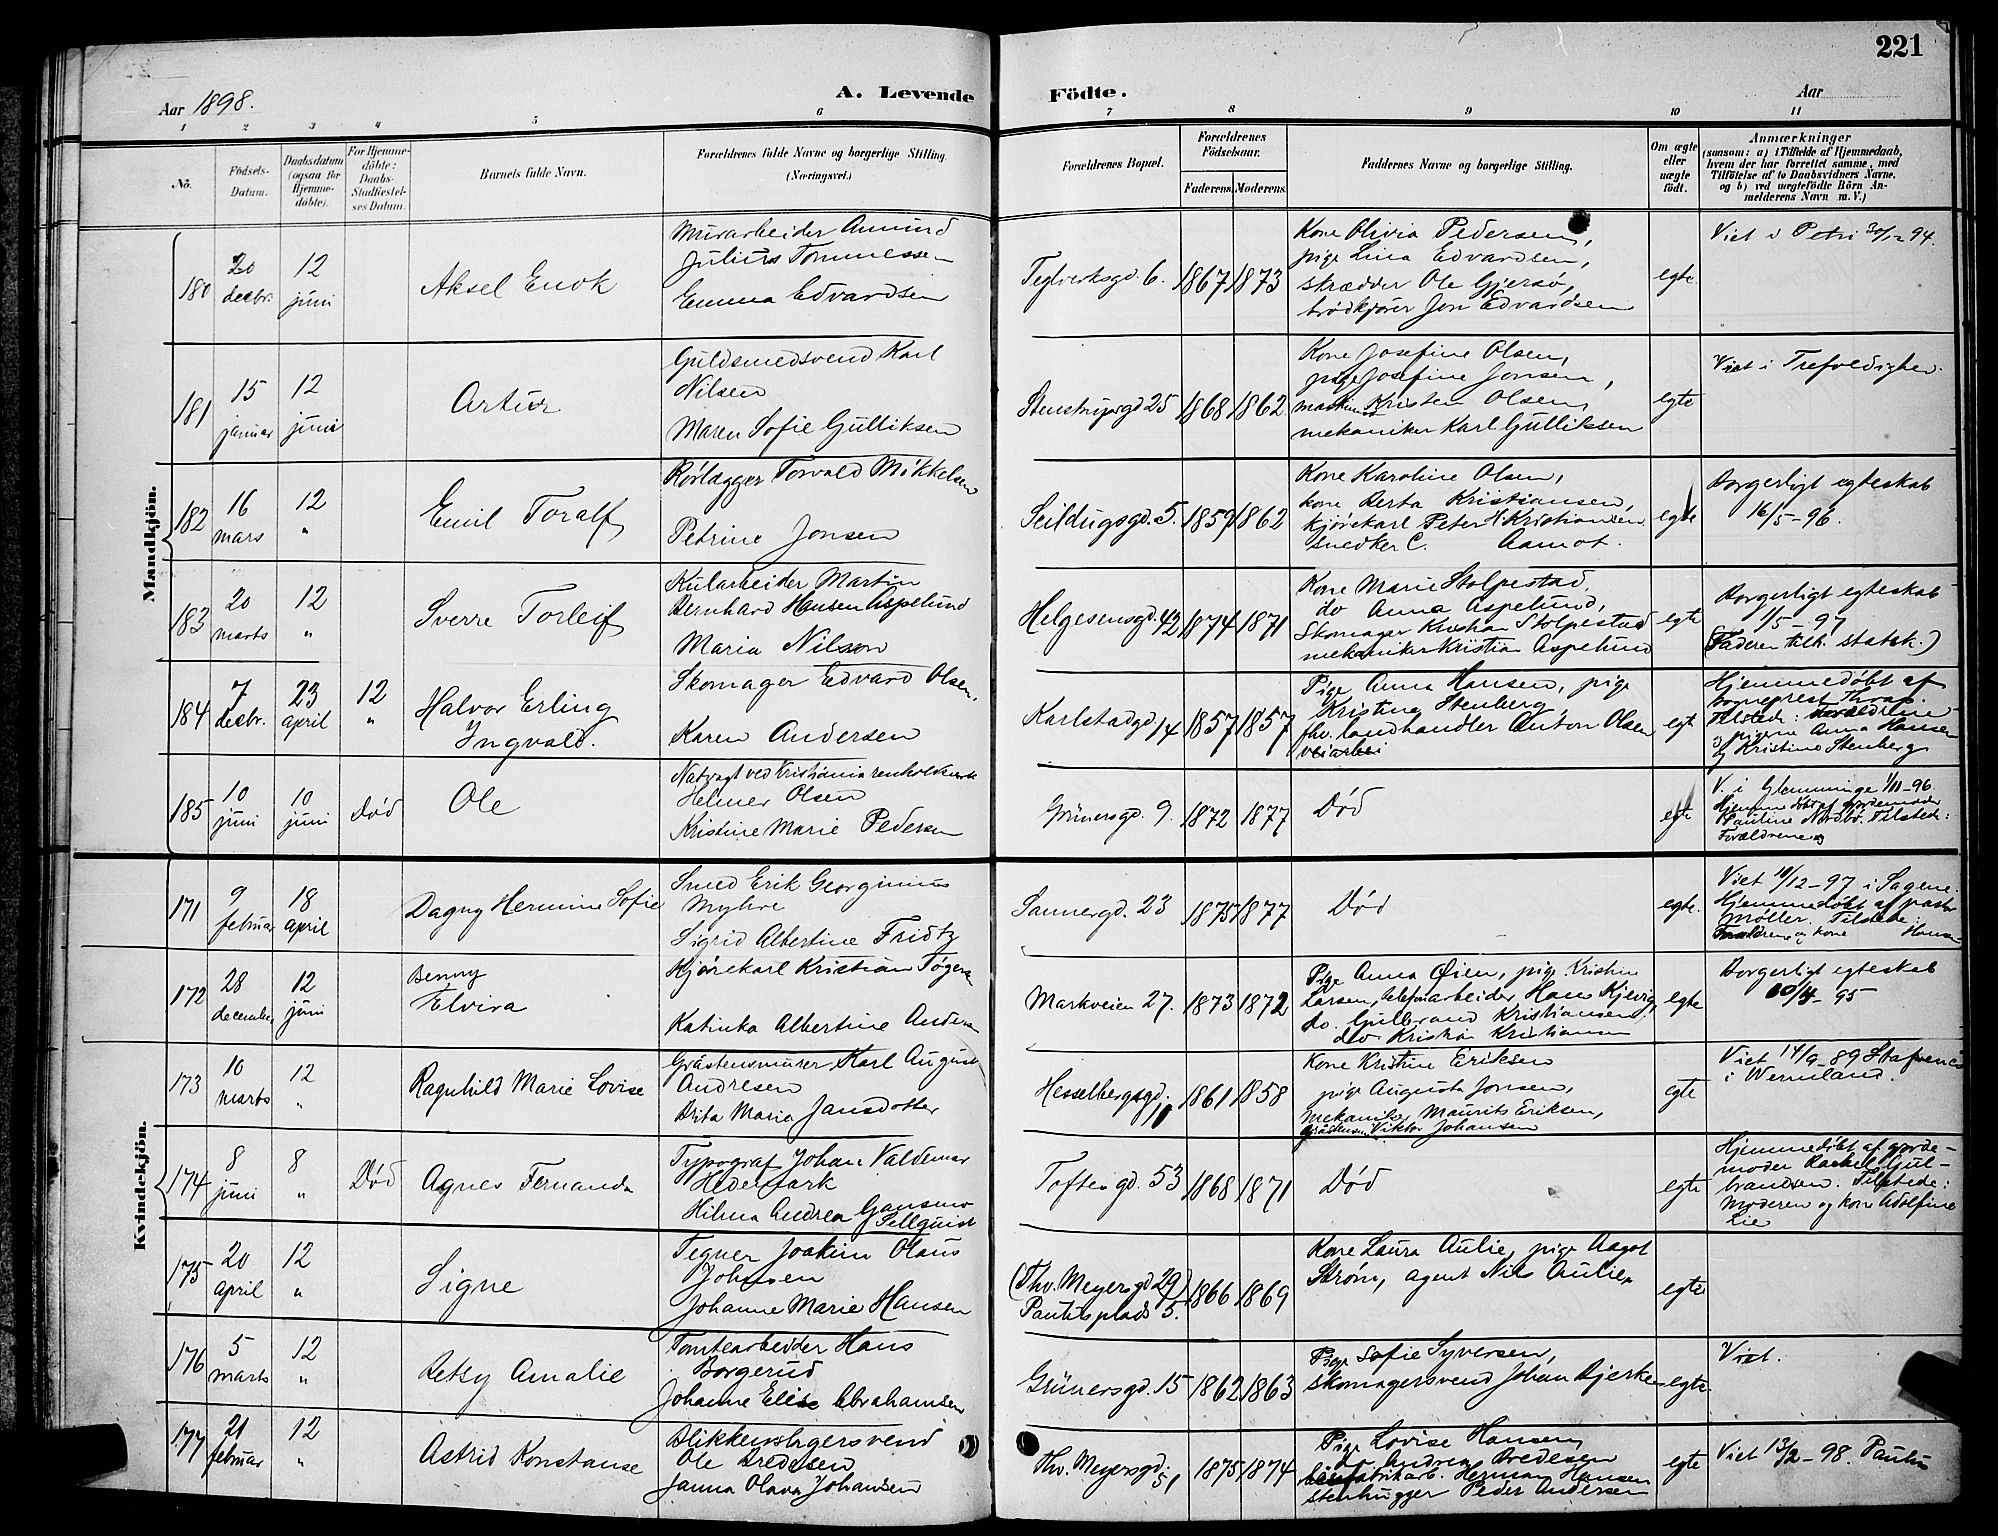 221
Aar 1898.
A. Levende Födte.
Aar
1 2 3 4 5 6 7 8 9 10 11
Nö.
Födsels-Datum.
Daabsdatum (ogsaa for Hjemmedöbte).
For Hjemmedöbte: Daabs-Stadfæstelses Datum.
Barnets fulde Navn.
Forældrenes fulde Navne og borgerlige Stilling.
(Næringsvei.)
Forældrenes Bopæl.
Forældrenes Födselsaar.
Faderens. Moderens.
Faddernes Navne og borgerlige Stilling.
Om ægte eller uægte födt.
Anmærkninger
(saasom: a) i Tilfælde af Hjemmedaab, hvem der har forrettet samme, med Tilföielse af to Daabsvidners Navne, og b) ved uægtefödte Börn Anmelderens Navn m. V.)
Mandkjön.
180 20 decbr. 12 juni
Aksel Enok
Murarbeider Amund
Julius Tommessen
Emma Edvardsen
Teglverksgd. 6. 1867 1873
Kone Olivia Pedersen,
pige Lina Edvardsen,
skrædder Ole Gjersø,
brødkjører Jon Edvardsen
egte
Viet i Petri 30/12 94.
181 15 januar 12 juni
Artur
Guldsmedsvend Karl
Nilsen
Maren Sofie Gulliksen
Stenstrupsgd 25 1868 1862
Kone Josefine Olsen,
pige Josefine Jonsen,
maskinist Kristen Olsen,
mekaniker Karl Gulliksen
egte
Viet i Trefoldighed.
182 16 mars 12 "
Emil Toralf
Rørlægger Torvald Mikkelsen
Petrine Jonsen
Seildugsgd. 5. 1859 1862
Kone Karoline Olsen,
kone Berta Kristiansen,
kjørekarl Peter N Kristiansen
snedker C. Aamot.
egte
Borgerligt egteskab
16/5-96.
183 20 marts 12 "
Sverre Torleif
Kularbeider Martin
Bernhard Hansen Aspelund
Maria Nilson
Helgesensgd. 42 1874 1871
Kone Marie Stolpestad
do Anna Aspelund,
Skomager Kristian Stolpestad
mekaniker Kristian Aspelund
egte
Borgerligt egteskab
1/5-97
(Faderen tilh. statsk.)
184 7 decbr. 23 april 12 "
Halvor Erling
Ingvald.
Skomager Edvard Olsen,
Karen Andersen
Karlstadgd. 14 1857 1857
Pige Anna Hansen, pige
Kristine Stenberg,
fhv. landhandler Anton Olsen
egte
Hjemmedøbt af
sogneprest Thvas.
Tilstede: forældrene
pigerne Anna Hansen
og Kristine Stenberg
185 10 juni 10 juni Død
Ole
Natvagt ved Kristiania renholdsverk
Helmer Olsen
Kristine Marie Pedersen
Grünersgd. 9. 1872 1877
Død
egte
V. i Glemminge 1/11-96.
Hjemmedøbt af gordemoder
Pauline Nordbø. Tilstede:
Forældrene
Kvindekjön.
171 9 februar 18 april
Dagny Hermine Sofie
Smed Erik Georginius
Myhre
Sigrid Albertine Fridtz
Sannergd. 23 1875 1877
Død
egte.
Viet 10/12-97 i Sagene.
Hjemmedøbt af pastor
Møller. Tilstede:
Forældrene og kone Hansen
172 28 december 12 juni
Benny
Elvira
Kjørekarl Kristian Tøgersen
Katinka Albertine Andersen
Markveien 27. 1873 1872
Pige Anna Øien, pige Kristin
Larsen, telefonarbeider Hans Kjevig,
do. Gulbrand Kristiansen,
do Kristian Kristiansen
egte
Borgerligt egteskab
10/4-95
173 10 marts 12 "
Ragnhild Marie Lovise
Gråstensmurer Karl August
Andresen
Brita Maria Jansdotter
Hesselbergsgd. 10 1861 1858
Kone Kristine Eriksen
pige Augusta Jonsen,
Mekaniker Maurits Eriksen,
Viktor Johansen
egte
Viet 14/9-89 Stafvenäs
i Wermland.
174 8 juni 8 " Død
Agnes Fernanda
Typograf Johan Valdemar
Hedemark
Hilma Andrea Gansmo
Sellquist
Toftesgd. 53 1868 1871
Død
egte
Hjemmedøbt af gorde-
moder Rachel Gul-
brandsen. Tilstede:
Moderen og kone Adolfine
Lie
175 20 april 12 "
Signe
Tegner Joakim Olaus
Johnsen
Johanne Marie Hansen
(Thv. Meyersgd 29)
Paulusplads 5. 1866 1869
Kone Laura Aulie, pige Aagot
Strøm, agent Nils Aulie.
egte
176 5 marts 12 "
Betsy Amalie
Tomtearbeider Hans
Borgerud
Johanne Elise Abrahamsen
Grünersgd. 15 1862 1863
Pige Sofie Syversen,
skomagersvend Johan Bjerke
egte
Viet.
177 21 februar 12 "
Astrid Konstanse
Blikkenslagersvend
Ole Bredesen
Janna Olava Johansen
Thv. Meyersgd. 51 1875 1874
Pige Lovise Hansen,
do Andrea Bredesen
fabrikarb. Herman Hansen
stenhugger Peder Andersen
egte
Viet 13/2-98. Paulus